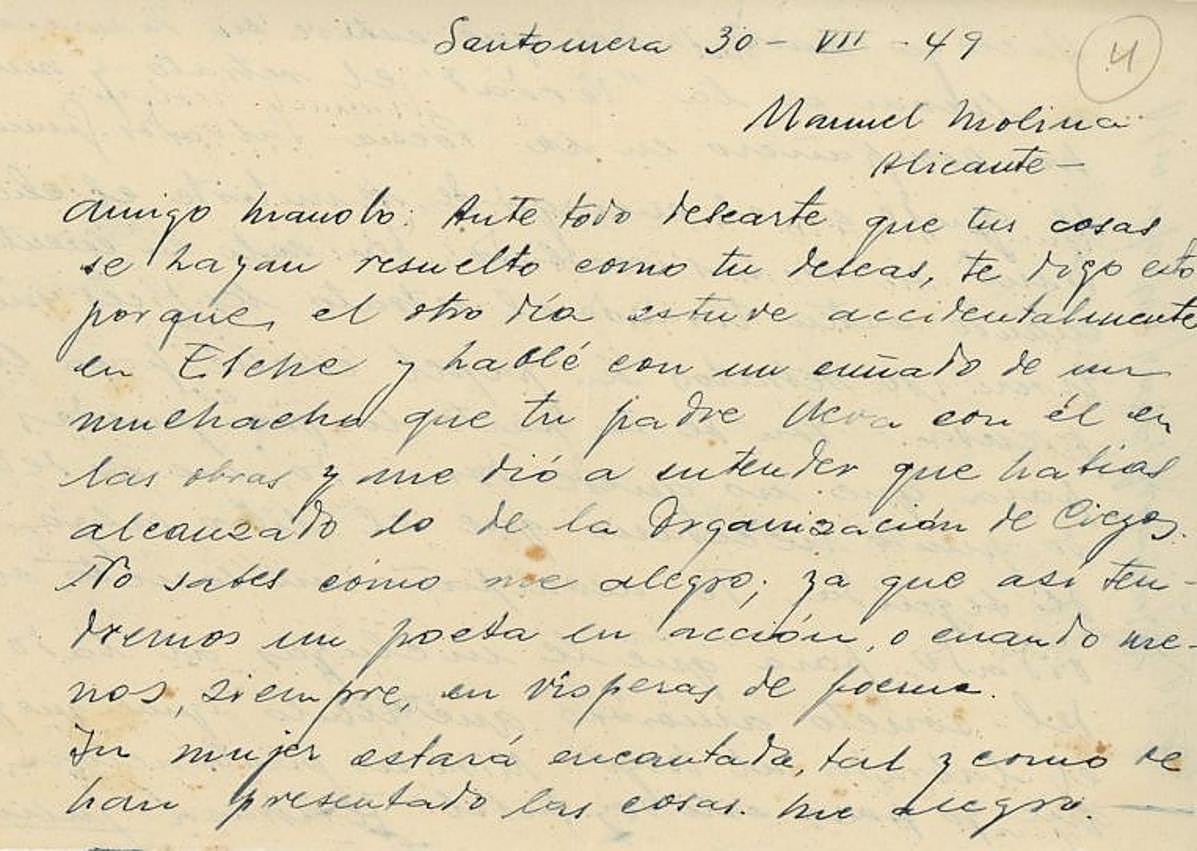 Santomera 30 - VII - 49
4
Manuel Molina
Alicante -
Amigo Manolo: Ante todo desearte que tus cosas
se hayan resuelto como tu deseas, te digo esto
porque, el otro día estuve accidentalmente
en Elche y hablé con un cuñado de un
muchacho que tu padre lleva con él en
las obras y me dió a entender que habías
alcanzado lo de la Organización de Ciegos.
No sabes cómo me alegro; ya que así ten-
dremos un poeta en acción, o cuando me-
nos, siempre, en vísperas de poema.
Tu mujer estará encantada, tal y como se
han presentado las cosas. Me alegro. -